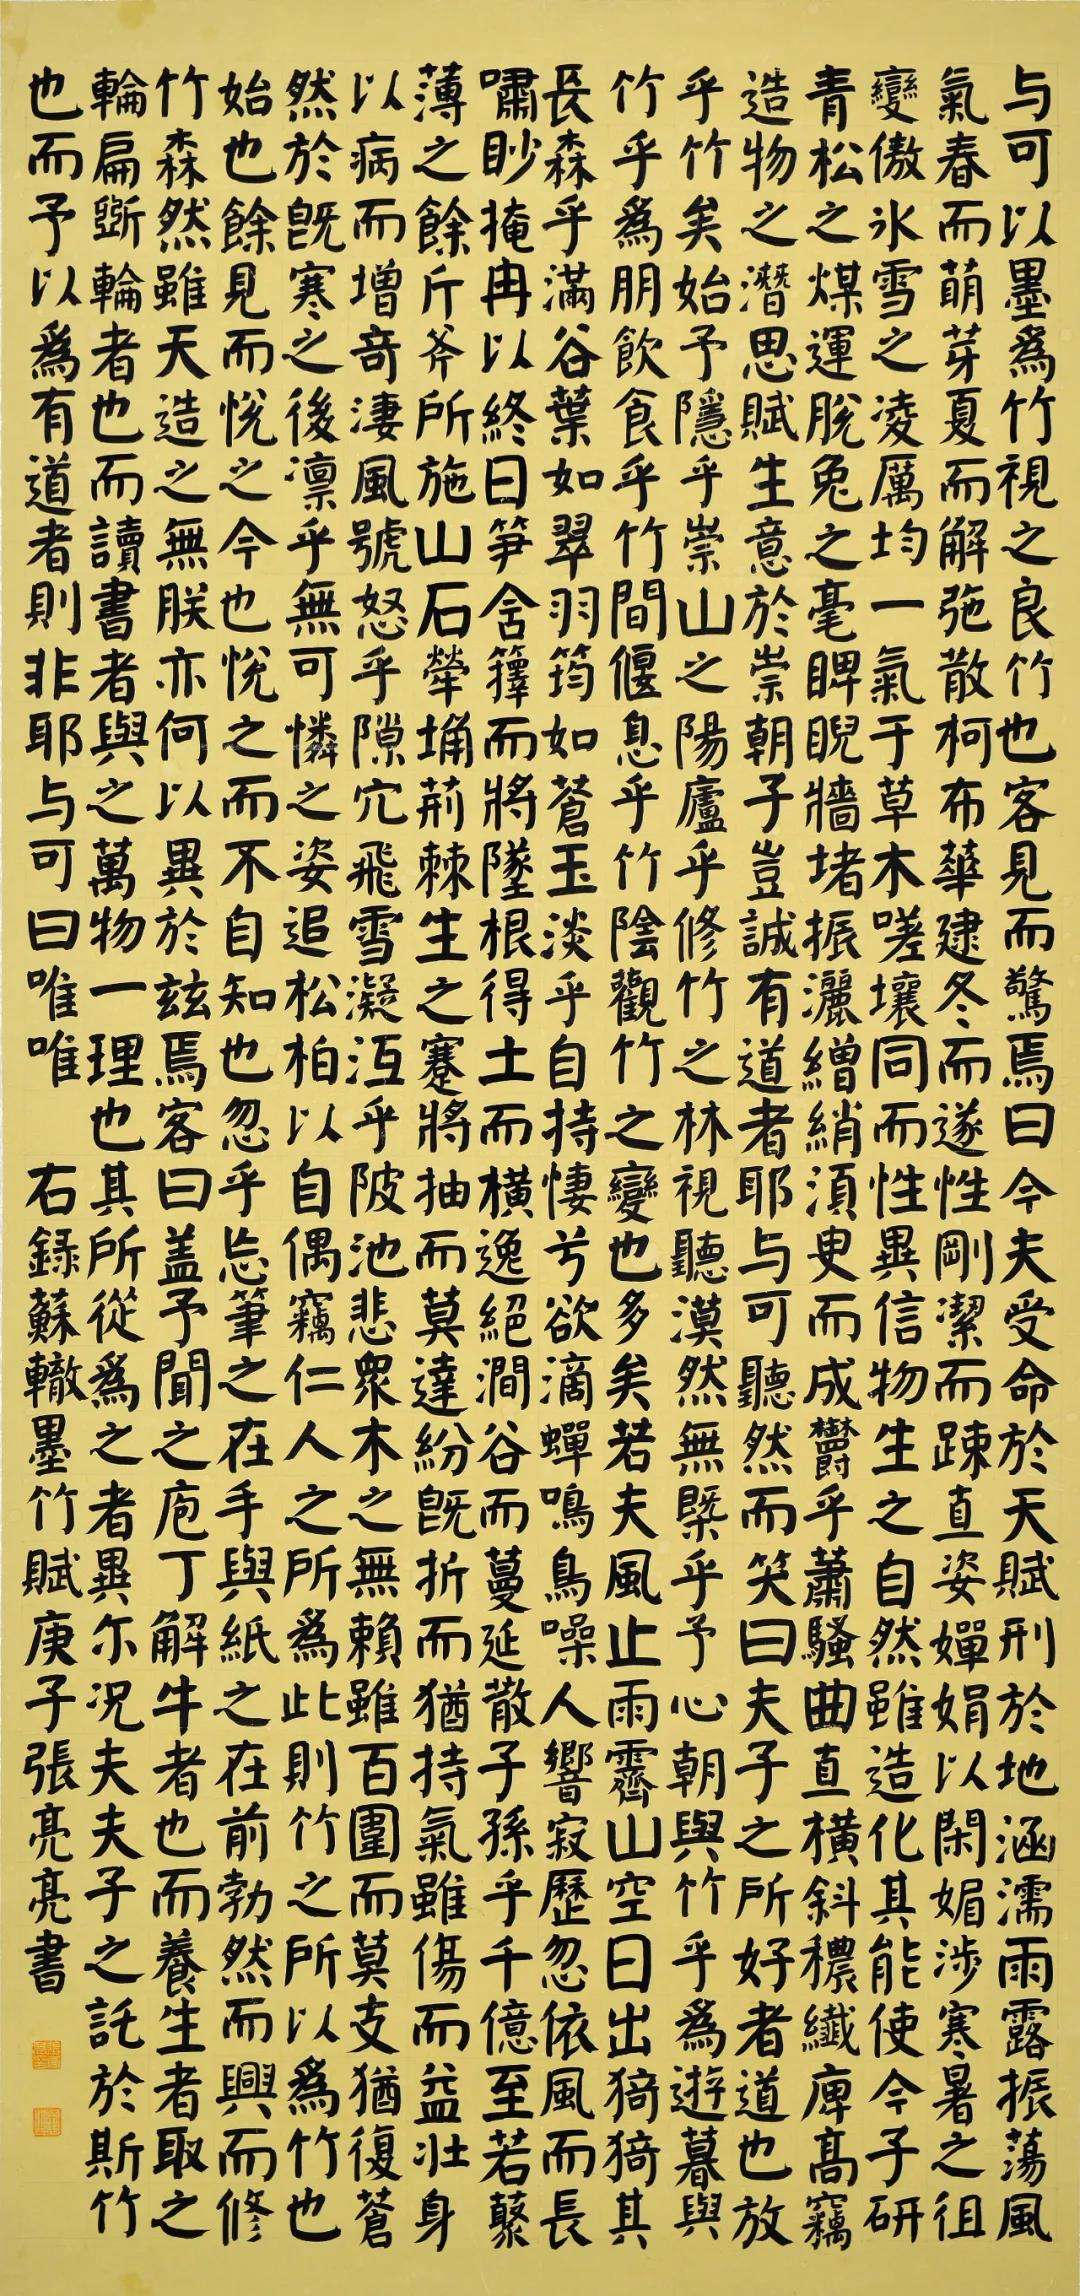 与可以墨為竹視之良竹也客見而驚焉曰今夫受命於天賦刑於地涵濡雨露振蕩風
氣春而萌芽夏而解弛散柯布華建冬而遂性剛潔而踈直姿嬋娟以閑媚涉寒暑之徂
變傲氷雪之凌厲均一氣于草木嗟壤同而性異信物生之自然雖造化其能使今子研
青松之煤運脫兔之毫睥睨牆堵振灑繒綃須臾而成欝乎蕭騷曲直橫斜穠纖庳高竊
造物之潛思賦生意於崇朝子豈誠有道者耶与可聽然而笑曰夫子之所好者道也放
乎竹矣始予隱乎崇山之陽廬乎修竹之林視聽漠然無槩乎予心朝與竹乎為遊暮與
竹乎為朋飲食乎竹間偃息乎竹陰觀竹之變也多矣若夫風止雨霽山空日出猗猗其
長森乎滿谷葉如翠羽筠如蒼玉淡乎自持悽兮欲滴蟬鳴鳥噪人響寂歷忽依風而長
嘯眇掩冉以終日笋含籜而將墜根得土而橫逸絕澗谷而蔓延散子孫乎千億至若藂
薄之餘斤斧所施山石犖埆荊棘生之蹇將抽而莫達紛既折而猶持氣雖傷而益壯身
以病而增奇淒風號怒乎隙穴飛雪凝冱乎陂池悲眾木之無賴雖百圍而莫支猶復蒼
然於既寒之後凛乎無可憐之姿追松柏以自偶竊仁人之所為此則竹之所以為竹也
始也餘見而悅之今也悅之而不自知也忽乎忘筆之在手與紙之在前勃然而興而修
竹森然雖天造之無朕亦何以異於兹焉客曰盖予聞之庖丁解牛者也而養生者取之
輪扁斲輪者也而讀書者與之萬物一理也其所從為之者異尔况夫夫子之託於斯竹
也而予以為有道者則非耶与可曰唯唯 右錄蘇轍墨竹賦庚子張亮亮書